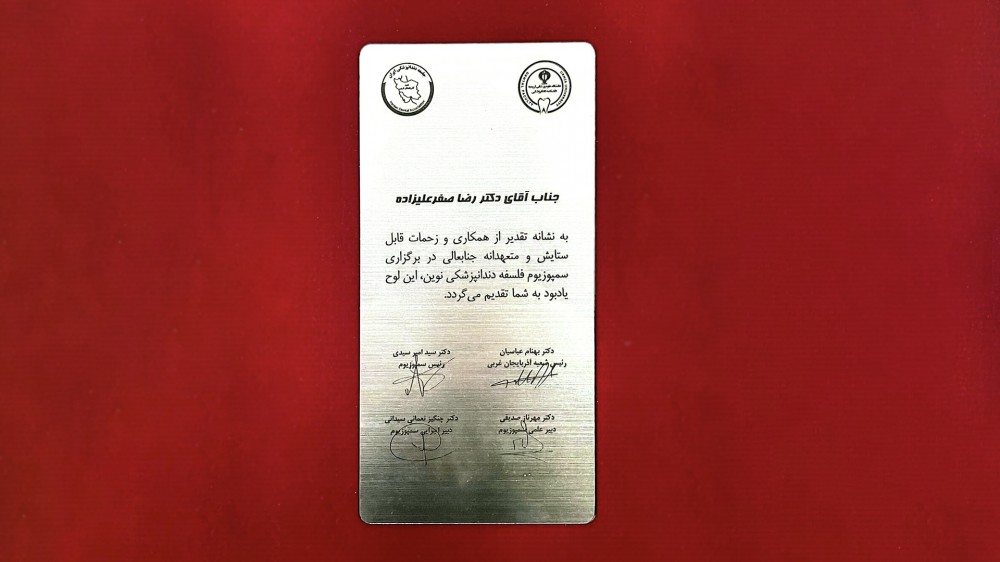 جامعه دندانپزشکی ایران
جناب آقای دکتر رضا صفرعلیزاده
به نشانه تقدیر از همکاری و زحمات قابل
ستایش و متعهدانه جنابعالی در برگزاری
سمپوزیوم فلسفه دندانپزشکی نوین، این لوح
یادبود به شما تقدیم می‌گردد.
دکتر بهنام عباسیان
رئیس شعبه آذربایجان غربی
دکتر سید امیر سیدی
رئیس سمپوزیوم
دکتر مهرناز صدیقی
دبیر علمی سمپوزیوم
دکتر چنگیز نعمانی سیدانی
دبیر اجرایی سمپوزیوم